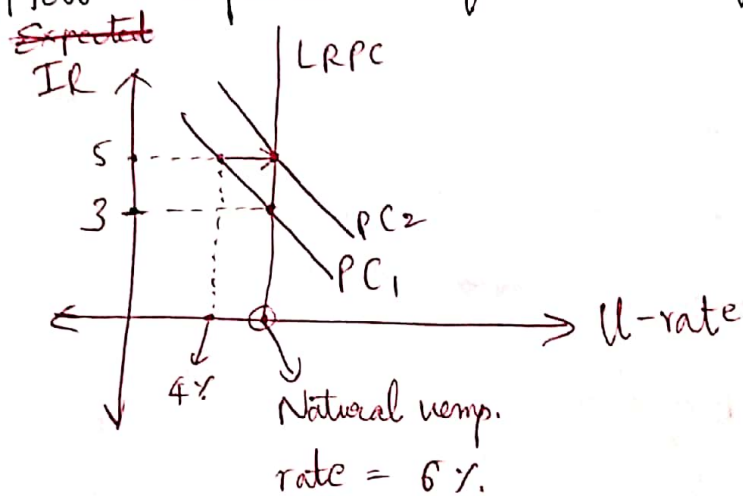 Expected
IR
LRPC
5
3
PC2
PC1
U-rate
4%
Natural uemp.
rate = 6%.